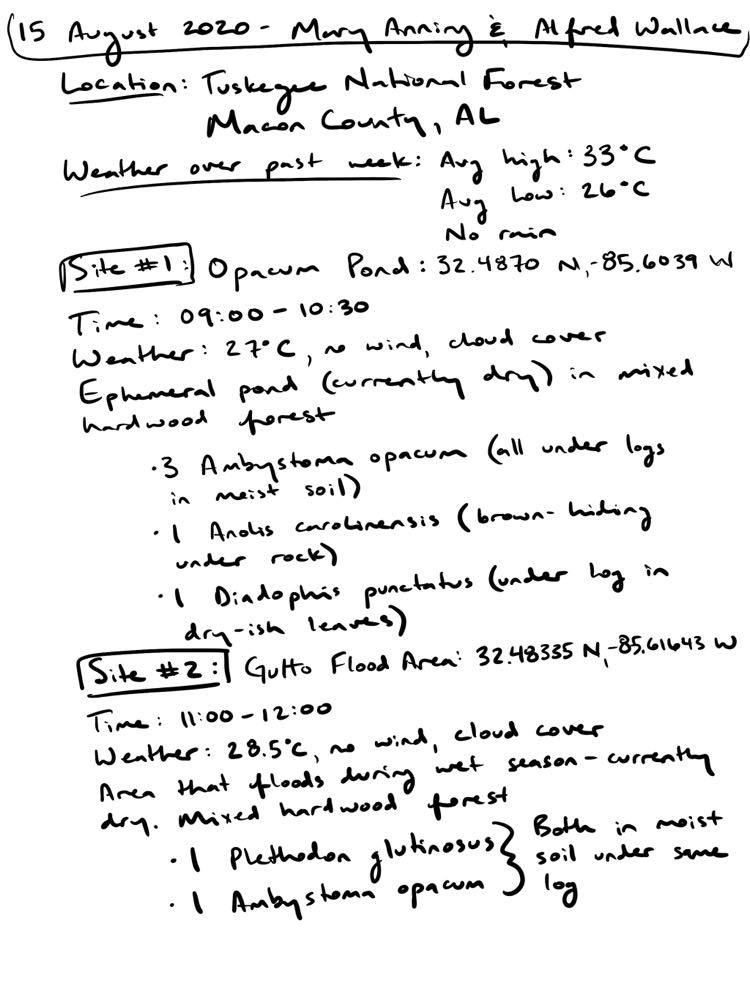 15 August 2020 - Mary Anning & Alfred Wallace
Location: Tuskegee National Forest
Macon County, AL
Weather over past week: Avg high: 33°C
Avg Low: 26°C
No rain
Site #1: Opacum Pond: 32.4870 N, -85.6039 W
Time: 09:00 - 10:30
Weather: 27°C, no wind, cloud cover
Ephemeral pond (currently dry) in mixed
hardwood forest
· 3 Ambystoma opacum (all under logs
in moist soil)
· 1 Anolis carolinensis (brown - hiding
under rock)
· 1 Diadophis punctatus (under log in
dry-ish leaves)
Site #2: Gutto Flood Area: 32.48335 N, -85.61643 W
Time: 11:00 - 12:00
Weather: 28.5°C, no wind, cloud cover
Area that floods during wet season - currently
dry. Mixed hardwood forest
· 1 Plethodon glutinosus } Both in moist
soil under same
· 1 Ambystoma opacum log